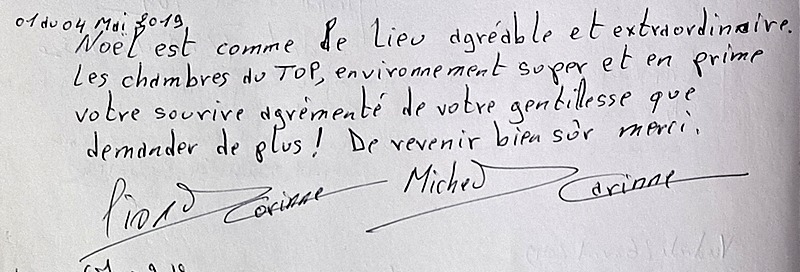 01 du 04 Mai 2019.
Noël est comme le lieu agréable et extraordinaire.
Les chambres du TOP, environnement super et en prime
votre sourire agrémenté de votre gentillesse que
demander de plus ! De revenir bien sûr merci.
Corinne Michel Carinne